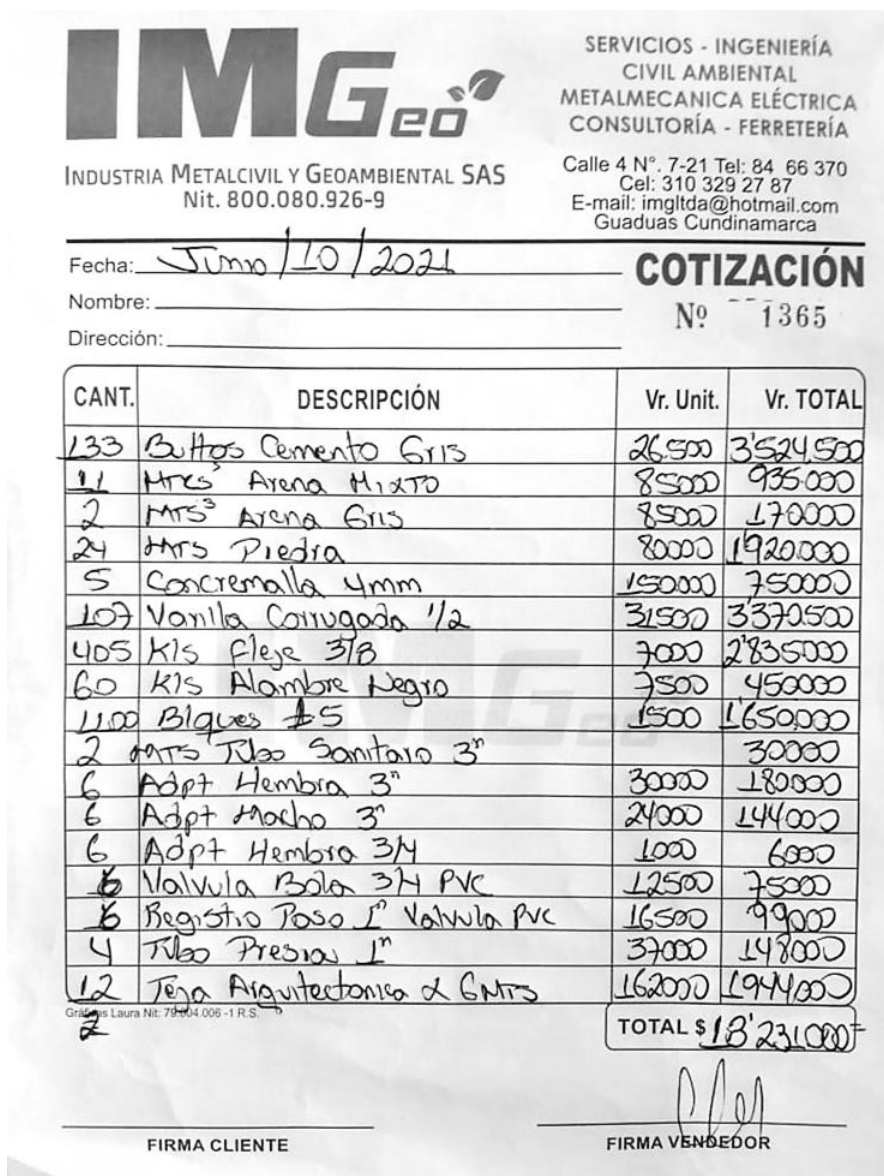 IMGeo
SERVICIOS - INGENIERÍA
CIVIL AMBIENTAL
METALMECANICA ELÉCTRICA
CONSULTORÍA - FERRETERÍA
INDUSTRIA METALCIVIL Y GEOAMBIENTAL SAS
Nit. 800.080.926-9
Calle 4 N°. 7-21 Tel: 84 66 370
Cel: 310 329 27 87
E-mail: imgltda@hotmail.com
Guaduas Cundinamarca
Fecha: Junio/10/2021
COTIZACIÓN
Nombre:
Nº 1365
Dirección:
CANT. DESCRIPCIÓN Vr. Unit. Vr. TOTAL
133 Bultos Cemento Gris 26.500 3'524.500
11 Mtrs³ Arena Mixto 85000 935.000
2 Mts³ Arena Gris 85000 170000
24 Mts Piedra 80000 1'920.000
5 Concremalla 4mm 150000 750000
107 Varilla Corrugada 1/2 31500 3'370.500
405 Kls Fleje 3/8 7000 2'835000
60 Kls Alambre Negro 7500 450000
1100 Blques #5 1500 1'650.000
2 Mts Tubo Sanitaro 3" 30000
6 Adpt Hembra 3" 30000 180000
6 Adpt Macho 3" 24000 144000
6 Adpt Hembra 3/4 1000 6000
6 Valvula Bola 3/4 PVC 12500 75000
6 Registro Poso 1" Valvula PVC 16500 99000
4 Tubo Presion 1" 37000 148000
12 Teja Arquitectonica 6 Mts 162000 1944000
Gráficas Laura Nit: 79.004.006 -1 R.S.
TOTAL $ 18'231.000=
FIRMA CLIENTE
FIRMA VENDEDOR